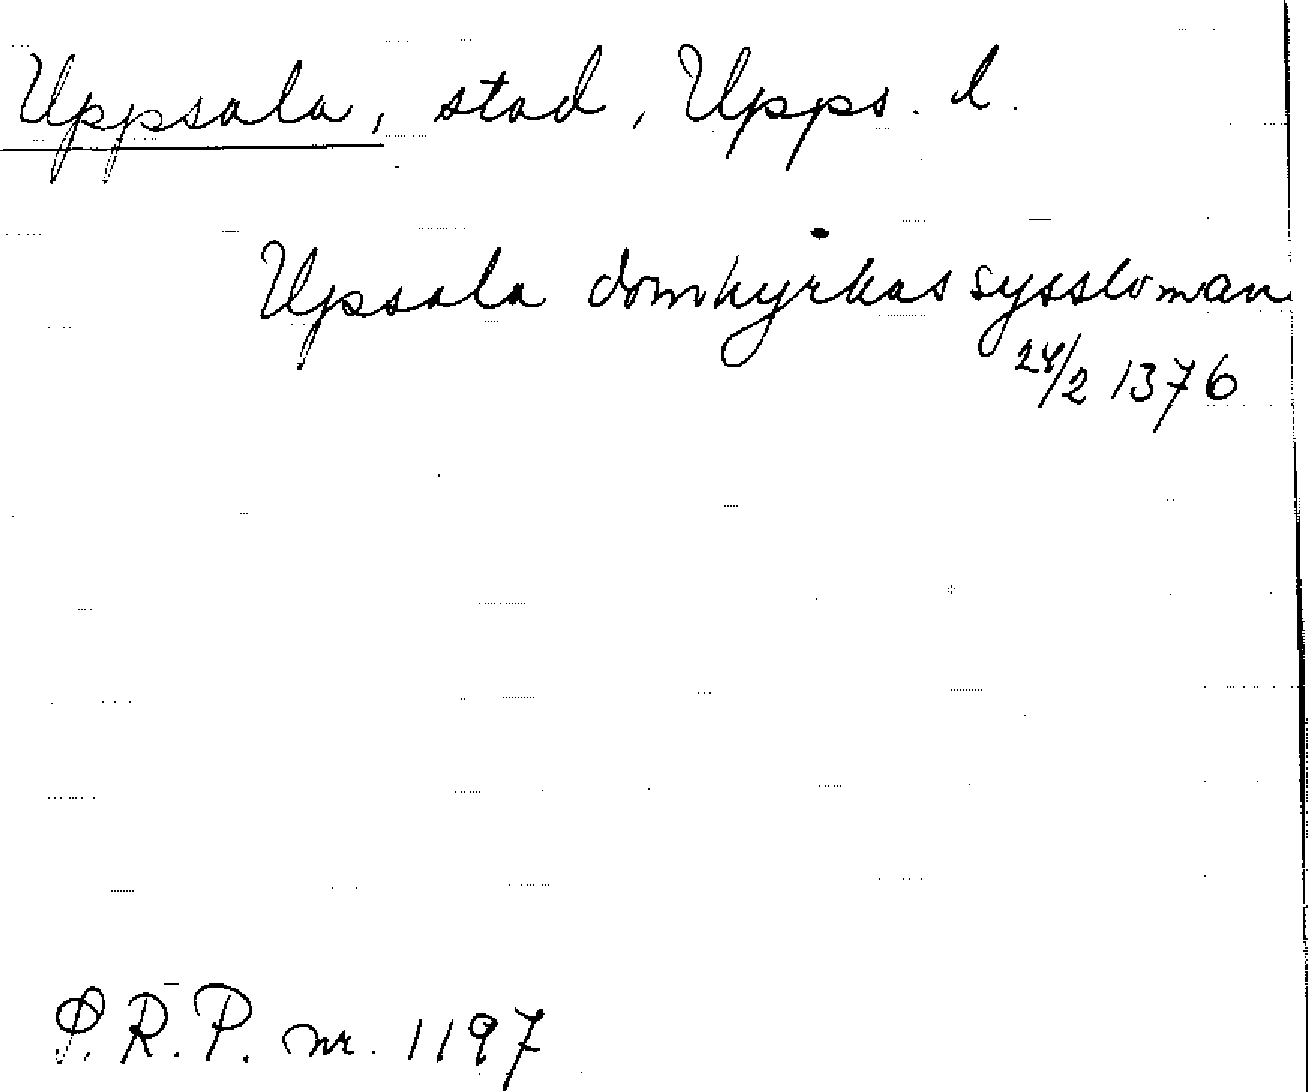 Uppsala, stad, Upps. l.
Upsala domkyrkas syssloman
24/2 1376
S.R.P. nr. 1197